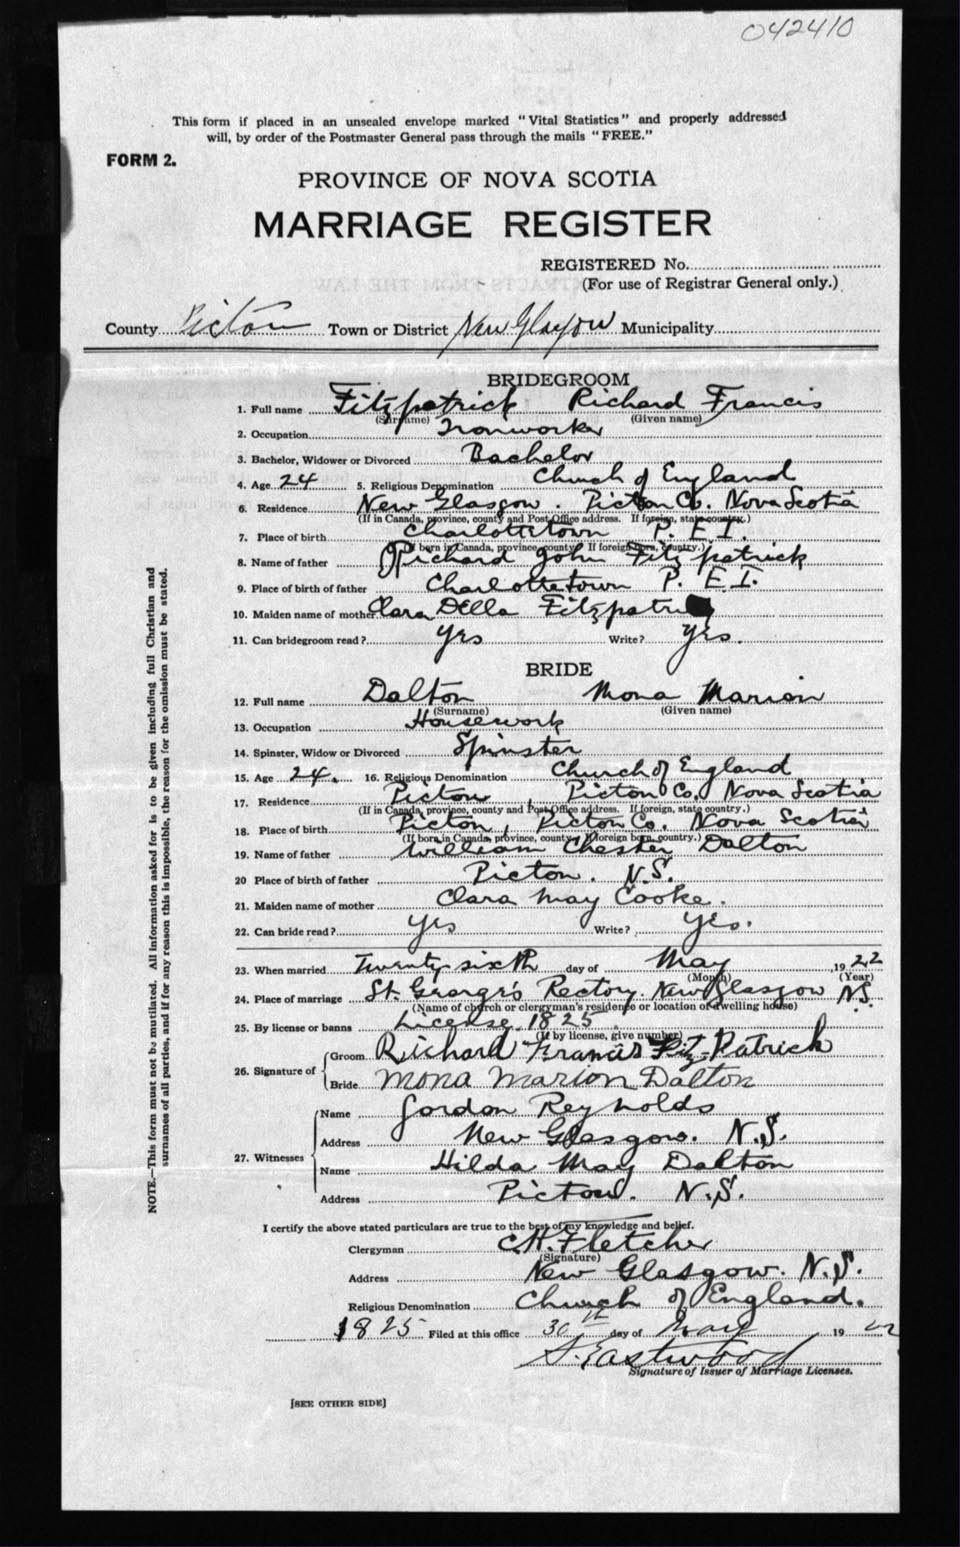 042410
This form if placed in an unsealed envelope marked "Vital Statistics" and properly addressed
will, by order of the Postmaster General pass through the mails "FREE."
FORM 2.
PROVINCE OF NOVA SCOTIA
MARRIAGE REGISTER
REGISTERED No.
(For use of Registrar General only.)
County Pictou Town or District New Glasgow Municipality
BRIDEGROOM
1. Full name Fitzpatrick Richard Francis
(Surname) (Given name)
2. Occupation Ironworker
3. Bachelor, Widower or Divorced Bachelor
4. Age 24 5. Religious Denomination Church of England
6. Residence New Glasgow. Pictou Co. Nova Scotia
(If in Canada, province, county and Post Office address. If foreign, state country.)
7. Place of birth Charlottetown P. E. I.
(If born in Canada, province, county. If foreign born, country.)
8. Name of father Richard John Fitzpatrick
9. Place of birth of father Charlottetown P. E. I.
10. Maiden name of mother Clara Della
11. Can bridegroom read? Yes Write? Yes.
BRIDE
12. Full name Dalton Mona Marion
(Surname) (Given name)
13. Occupation Housework
14. Spinster, Widow or Divorced Spinster
15. Age 24. 16. Religious Denomination Church of England
17. Residence Pictou, Pictou Co. Nova Scotia
(If in Canada, province, county and Post Office address. If foreign, state country.)
18. Place of birth Pictou, Pictou Co. Nova Scotia
(If born in Canada, province, county. If foreign born, country.)
19. Name of father William Chester Dalton
20 Place of birth of father Pictou. N.S.
21. Maiden name of mother Clara May Cooke.
22. Can bride read? Yes Write? Yes.
23. When married Twenty sixth day of May 1922
(Month) (Year)
24. Place of marriage St. George's Rectory, New Glasgow N.S.
(Name of church or clergyman's residence or location of dwelling house)
25. By license or banns License 1825
(If by license, give number)
26. Signature of
Groom Richard Francis Fitz-Patrick
Bride Mona Marion Dalton
27. Witnesses
Name Gordon Reynolds
Address New Glasgow. N.S.
Name Hilda May Dalton
Address Pictou. N.S.
I certify the above stated particulars are true to the best of my knowledge and belief.
Clergyman C.H. Fletcher
(Signature)
Address New Glasgow. N.S.
Religious Denomination Church of England.
1825 Filed at this office 30th day of May 1922
S. Eastwood
Signature of Issuer of Marriage Licenses.
[SEE OTHER SIDE]
NOTE.—This form must not be mutilated. All information asked for is to be given including full Christian and
surnames of all parties, and if for any reason this is impossible, the reason for the omission must be stated.